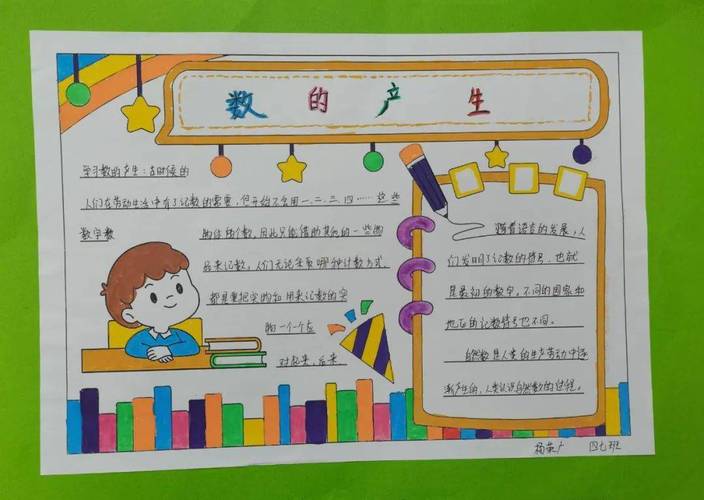 数的产生
学习数的产生：古时候的
人们在劳动生活中有了记数的需要，但开始不会用一、二、三、四……这些
数字数
物体的个数，因此只能借助其他的一些物
品来记数，人们无论采取哪种计数方式，
都是要把实物和用来记数的实
物一个一个
对起来，后来
随着语言的发展，人
们发明了记数的符号，也就
是最初的数字，不同的国家和
地区的记数符号也不同。
自然数是人类的生产劳动中逐
渐产生的，人类认识自然数的过程。
四七班